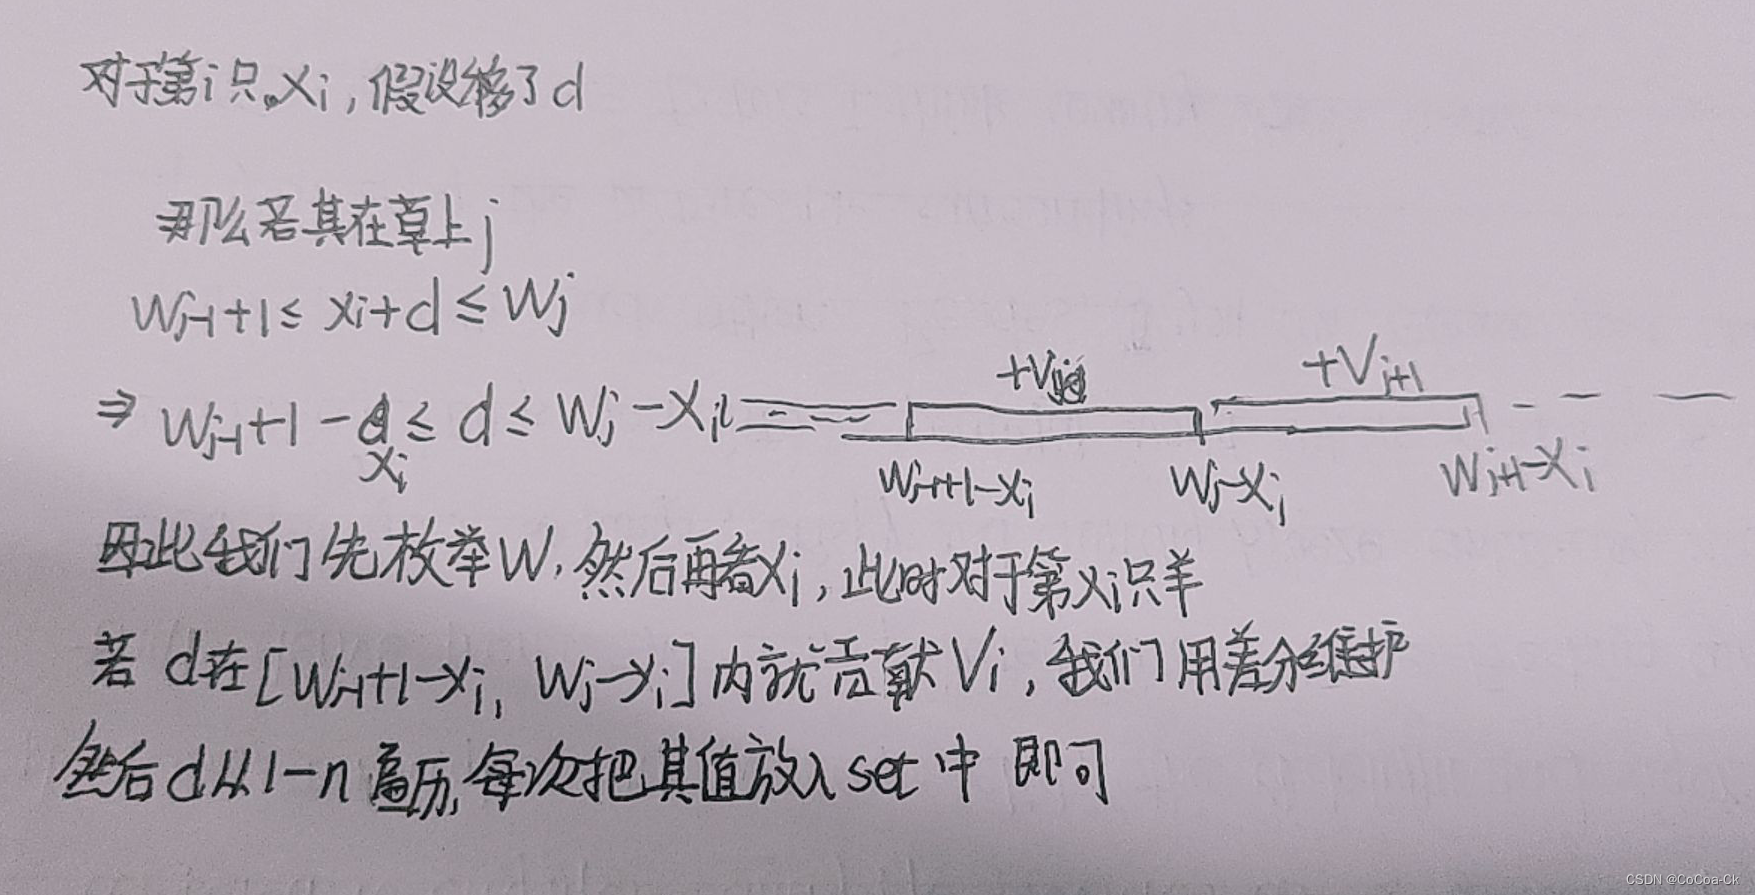 对于第i只xi,假设移了d
那么若其在草上j
Wj-1+1≤ xi+d ≤ Wj
+Vj +Vj+1
⇒ Wj-1+1-xi ≤ d ≤ Wj-Xi
Wj-1+1-xi Wj-xi Wj+1-xi
因此我们先枚举W,然后再看xi,此时对于第xi识羊
若 d在[Wj-1+1-xi, Wj-xi]内就贡献Vi,我们用差分维护
然后d从1-n遍历,每次把其值放入set中即可
CSDN @CoCoa-Ck